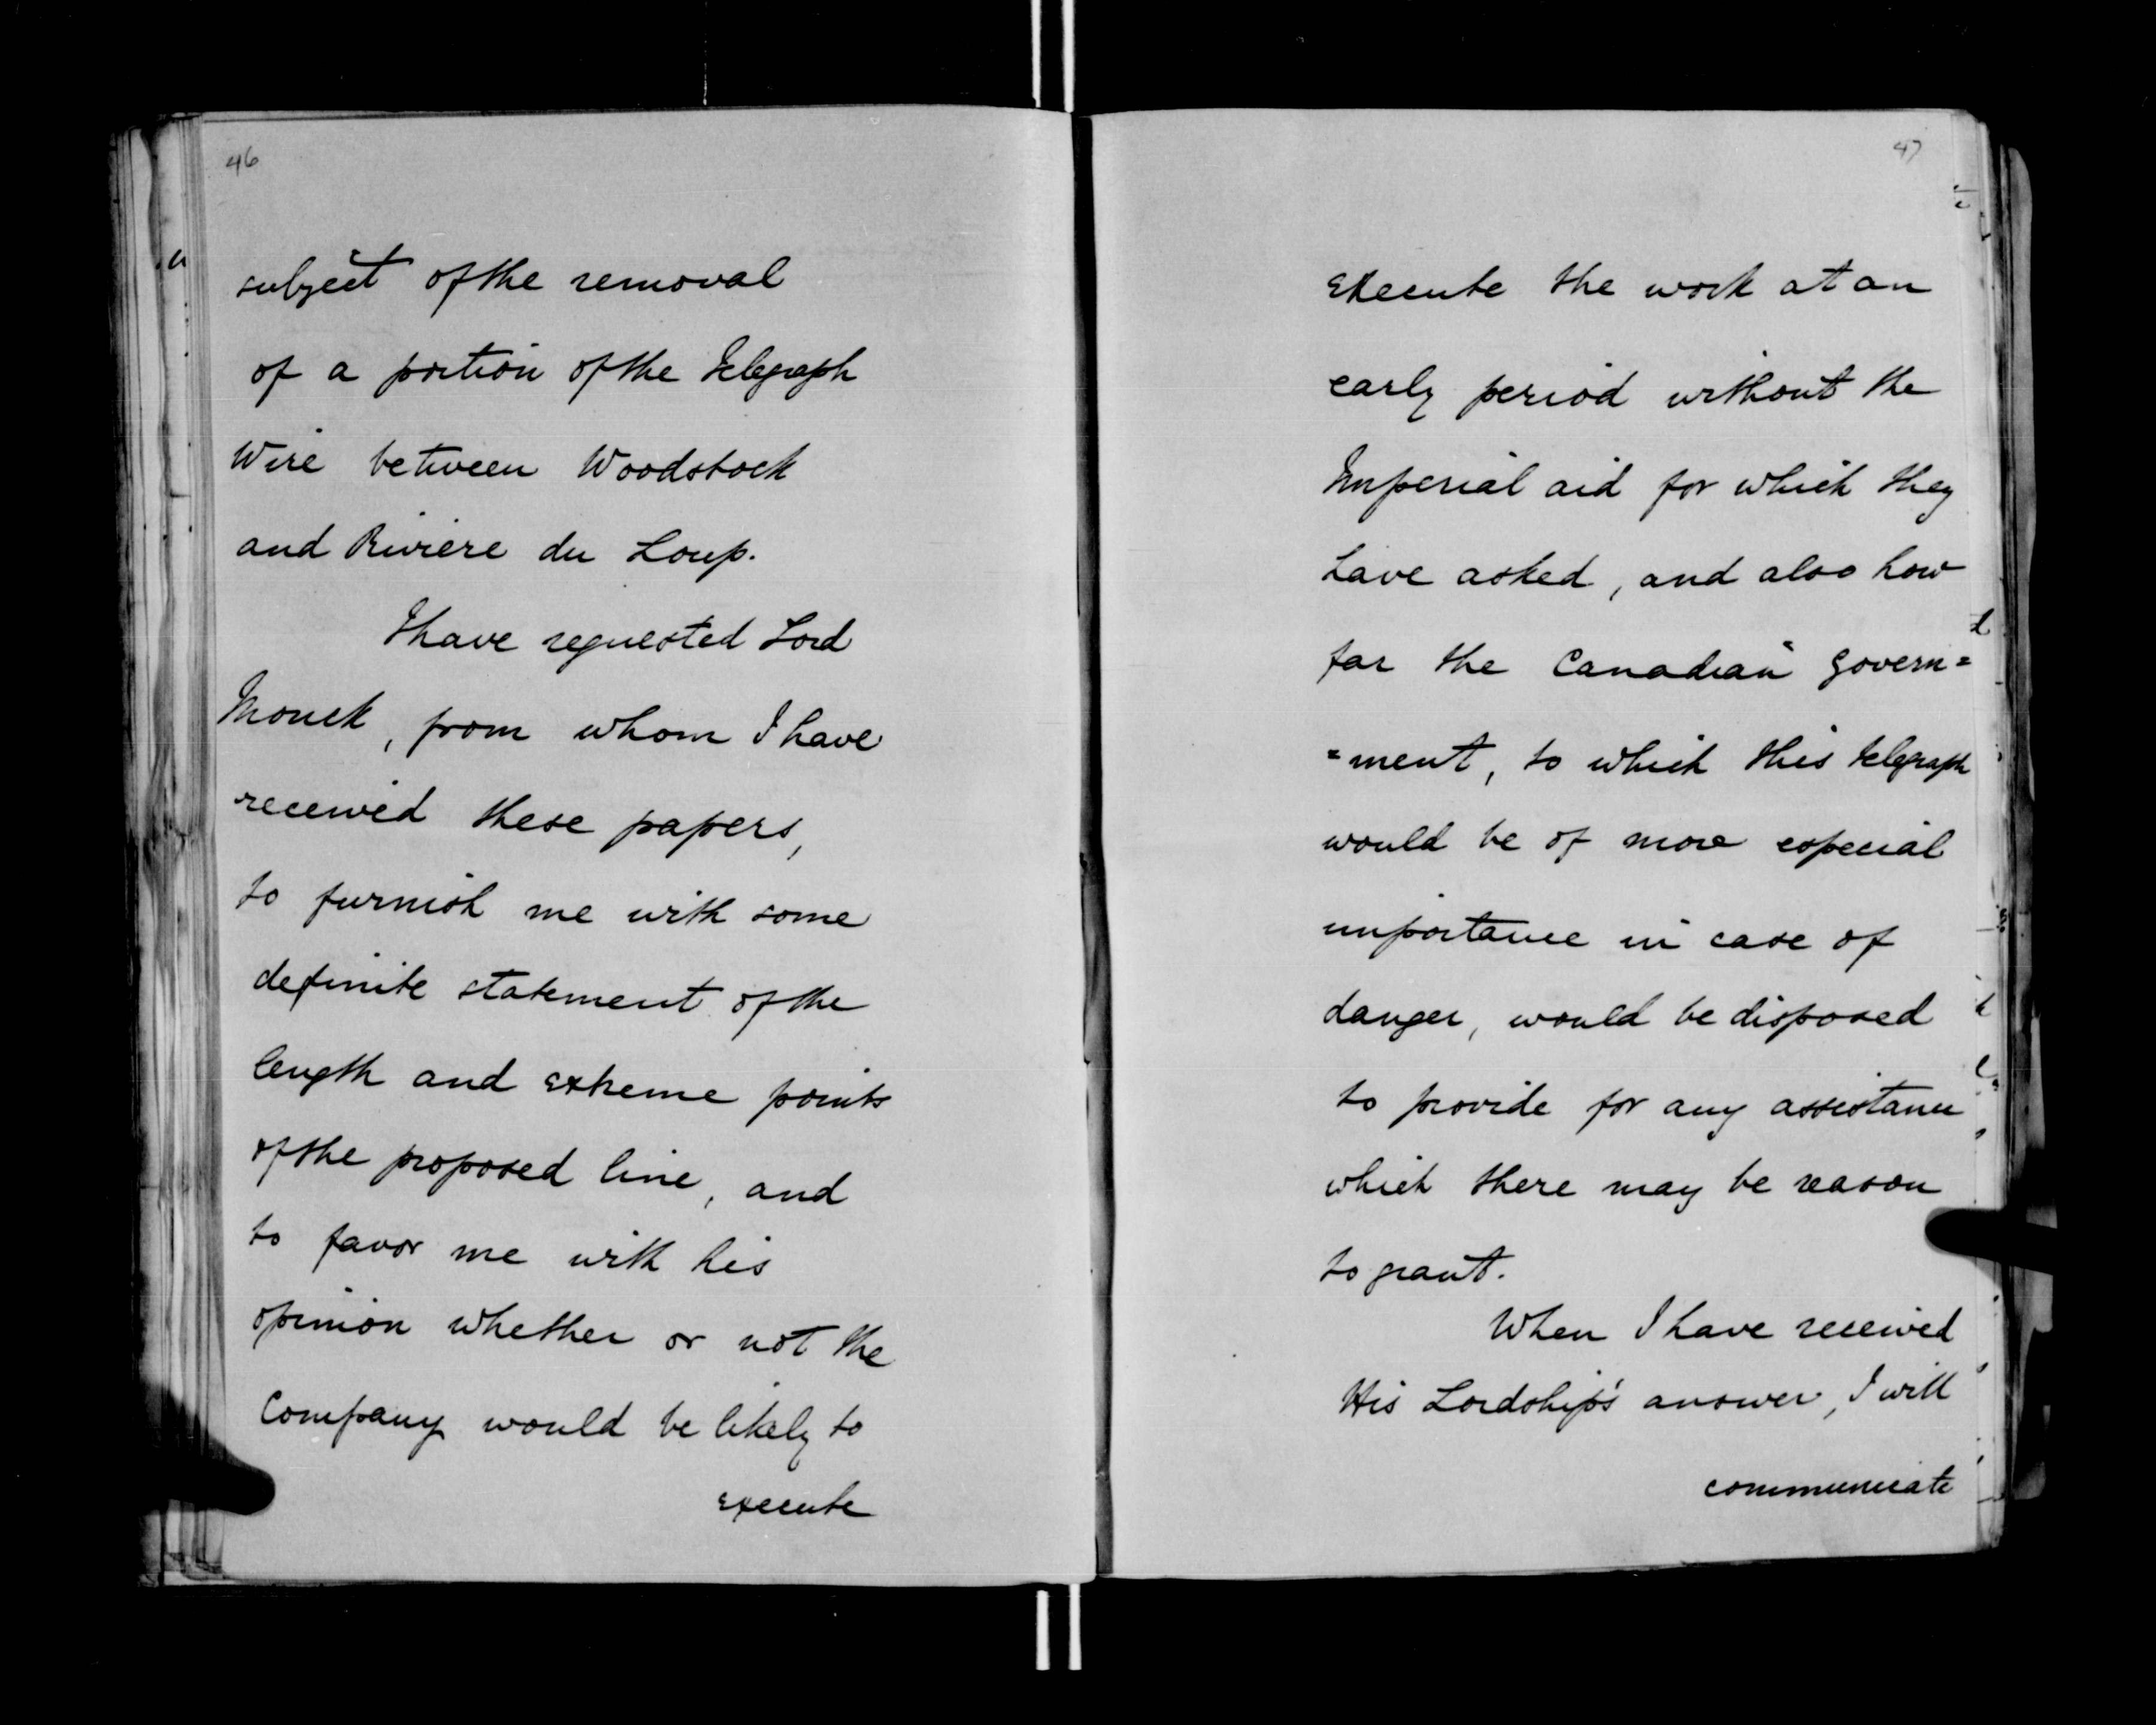 46
subject of the removal
of a portion of the Telegraph
Wire between Woodstock
and Riviere du Loup.
I have requested Lord
Monck, from whom I have
received these papers,
to furnish me with some
definite statement of the
length and extreme points
of the proposed line, and
to favor me with his
opinion whether or not the
Company would be likely to
execute
47
execute the work at an
early period without the
Imperial aid for which they
have asked, and also how
far the Canadian Govern=
=ment, to which this telegraph
would be of more especial
importance in case of
danger, would be disposed
to provide for any assistance
which there may be reason
to grant.
When I have received
His Lordship's answer, I will
communicate